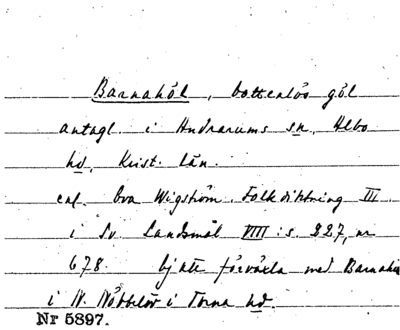 Barnahöl, bottenlös göl
antagl. i Andrarums sn, Albo
hd, Krist. län.
enl. Eva Wigström. Folkdiktning III.
i Sv. Landsmål VIII: s. 227, nr
678. Ej att förväxla med
i N. Nöbbelöv i Torna hd.
Nr 5897.